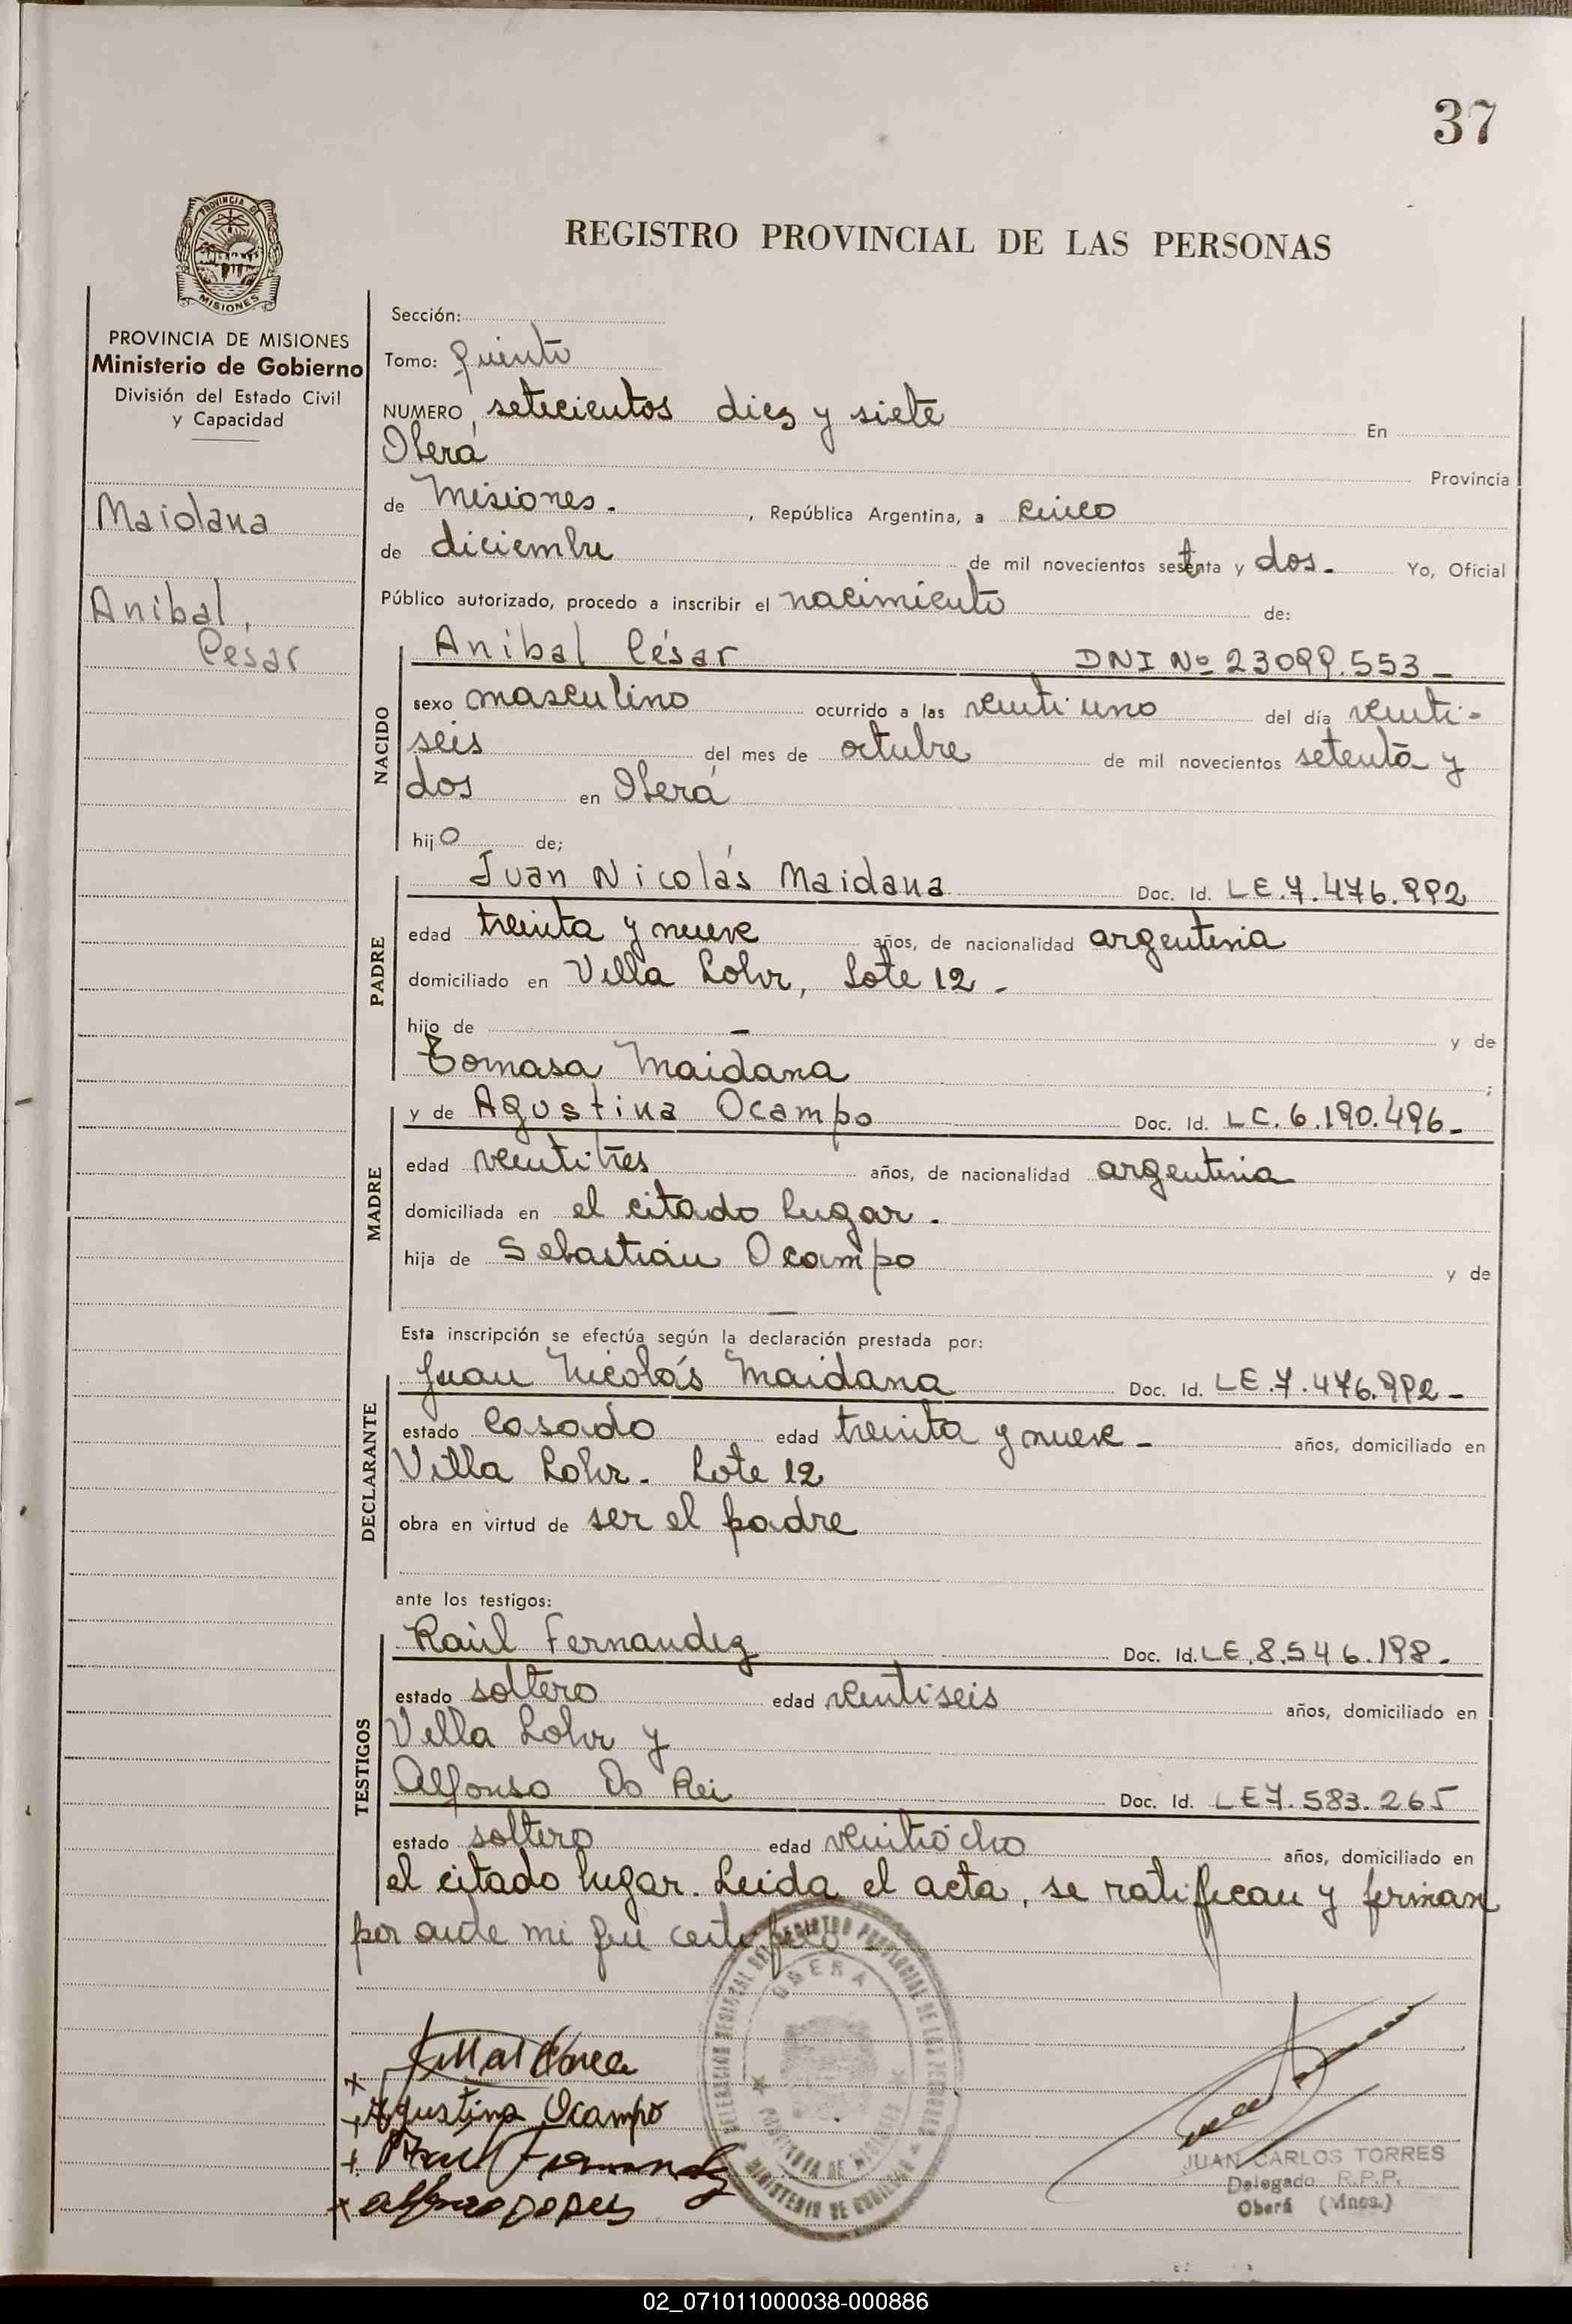 37
PROVINCIA DE
MISIONES
REGISTRO PROVINCIAL DE LAS PERSONAS
PROVINCIA DE MISIONES
Ministerio de Gobierno
División del Estado Civil
y Capacidad
Maidana
Aníbal,
César
Sección:
Tomo: quinto
NUMERO setecientos diez y siete En
Oberá Provincia
de Misiones. , República Argentina, a cinco
de diciembre de mil novecientos setenta y dos. Yo, Oficial
Público autorizado, procedo a inscribir el nacimiento de:
NACIDO
Aníbal César DNI Nº 23099.553_
sexo masculino ocurrido a las veinti uno del día veinti-
seis del mes de octubre de mil novecientos setenta y
dos en Oberá
hijo de;
PADRE
Juan Nicolás Maidana Doc. Id. LE.7.476.992
edad treinta y nueve años, de nacionalidad argentina
domiciliado en Villa Lohr, Lote 12 -
hijo de — y de
Tomasa Maidana ;
MADRE
y de Agustina Ocampo Doc. Id. LC. 6.190.496-
edad veintitres años, de nacionalidad argentina
domiciliada en el citado lugar.
hija de Sebastián Ocampo y de
—
Esta inscripción se efectúa según la declaración prestada por:
DECLARANTE
Juan Nicolás Maidana Doc. Id. LE.7.476.992-
estado Casado edad treinta y nueve - años, domiciliado en
Villa Lohr. Lote 12
obra en virtud de ser el padre
ante los testigos:
TESTIGOS
Raúl Fernandez Doc. Id. LE.8.546.198-
estado soltero edad veintiseis años, domiciliado en
Villa Lohr y
Alfonso Do Rei Doc. Id. LE7.583.265
estado soltero edad veintiocho años, domiciliado en
el citado lugar. Leida el acta, se ratifican y firman
por ante mi que certifico
DELEGACION REGIONAL DEL REGISTRO PROVINCIAL DE LAS PERSONAS
OBERA
PROVINCIA DE MISIONES
MINISTERIO DE GOBIERNO
Agustina Ocampo
Raul Fernandez
JUAN CARLOS TORRES
Delegado R.P.P.
Oberá (Mnes.)
02_071011000038-000886